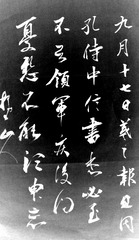 九月十七日羲之報且因
孔侍中信書想必至
不知領軍疾後問
憂懸不能須臾忘